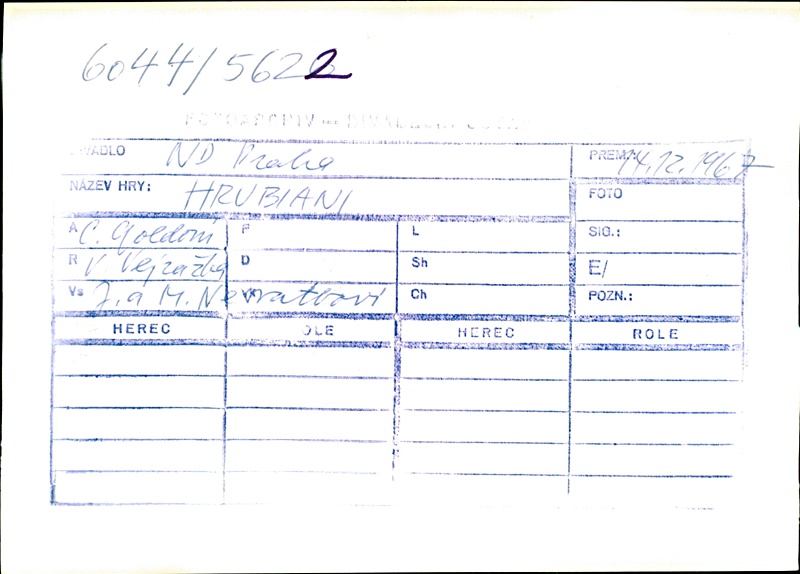 6044/5622
FOTOARCHIV — DIVADELNÍ
DIVADLO ND Praha PREM.: 14.12.1967
NÁZEV HRY: HRUBIANI FOTO
A C. Goldoni P L SIG.:
R V. Vejražka D Sh E/
Vs J. a M. Nevratilovi Ch POZN.:
HEREC ROLE HEREC ROLE